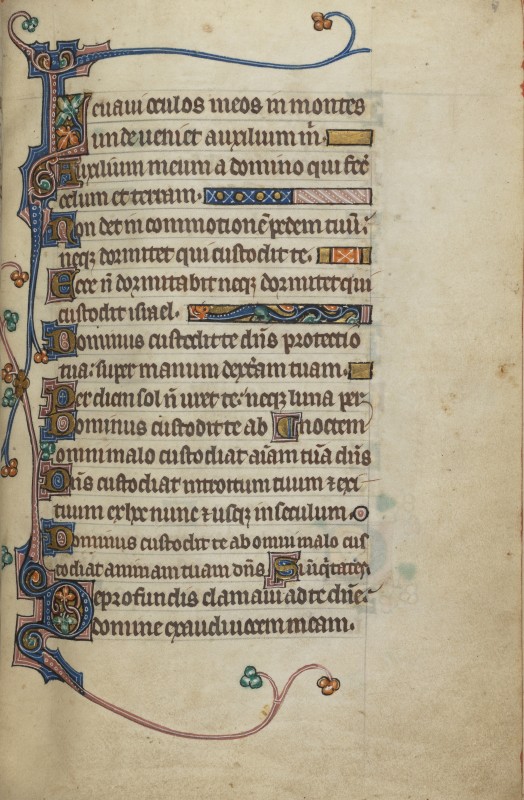 Leuaui oculos meos in montes
unde ueniet auxilium m̄.
Auxilium meum a domino qui fec̄
celum et terram.
Non det in commotionē pedem tuū:
neqȝ dormitet qui custodit te.
Ecce n̄ dormitabit neqȝ dormitet qui
custodit israel.
Dominus custodit te dn̄s protectio
tua: super manum dexterā tuam.
Per diem sol n̄ uret te: neqȝ luna per
Dominus custodit te ab noctem
omni malo custodiat aīam tuā dn̄s
Dn̄s custodiat introitum tuum ⁊ exi
tuum ex hoc nunc ⁊ usqȝ in seculum.
Dominus custodit te ab omni malo cus
todiat animam tuam dn̄s. Si iniq̄tates
De profundis clamaui ad te dn̄e:
domine exaudi uocem meam.